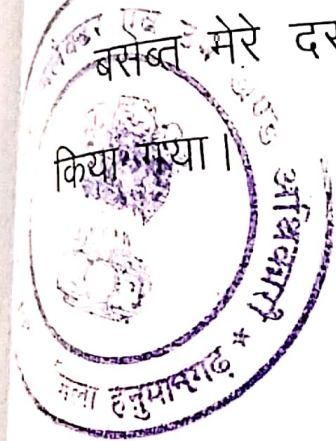 बसेब्त मेरे दस
किया गया।
एवं
अधिकारी
जिला हनुमानगढ़ *